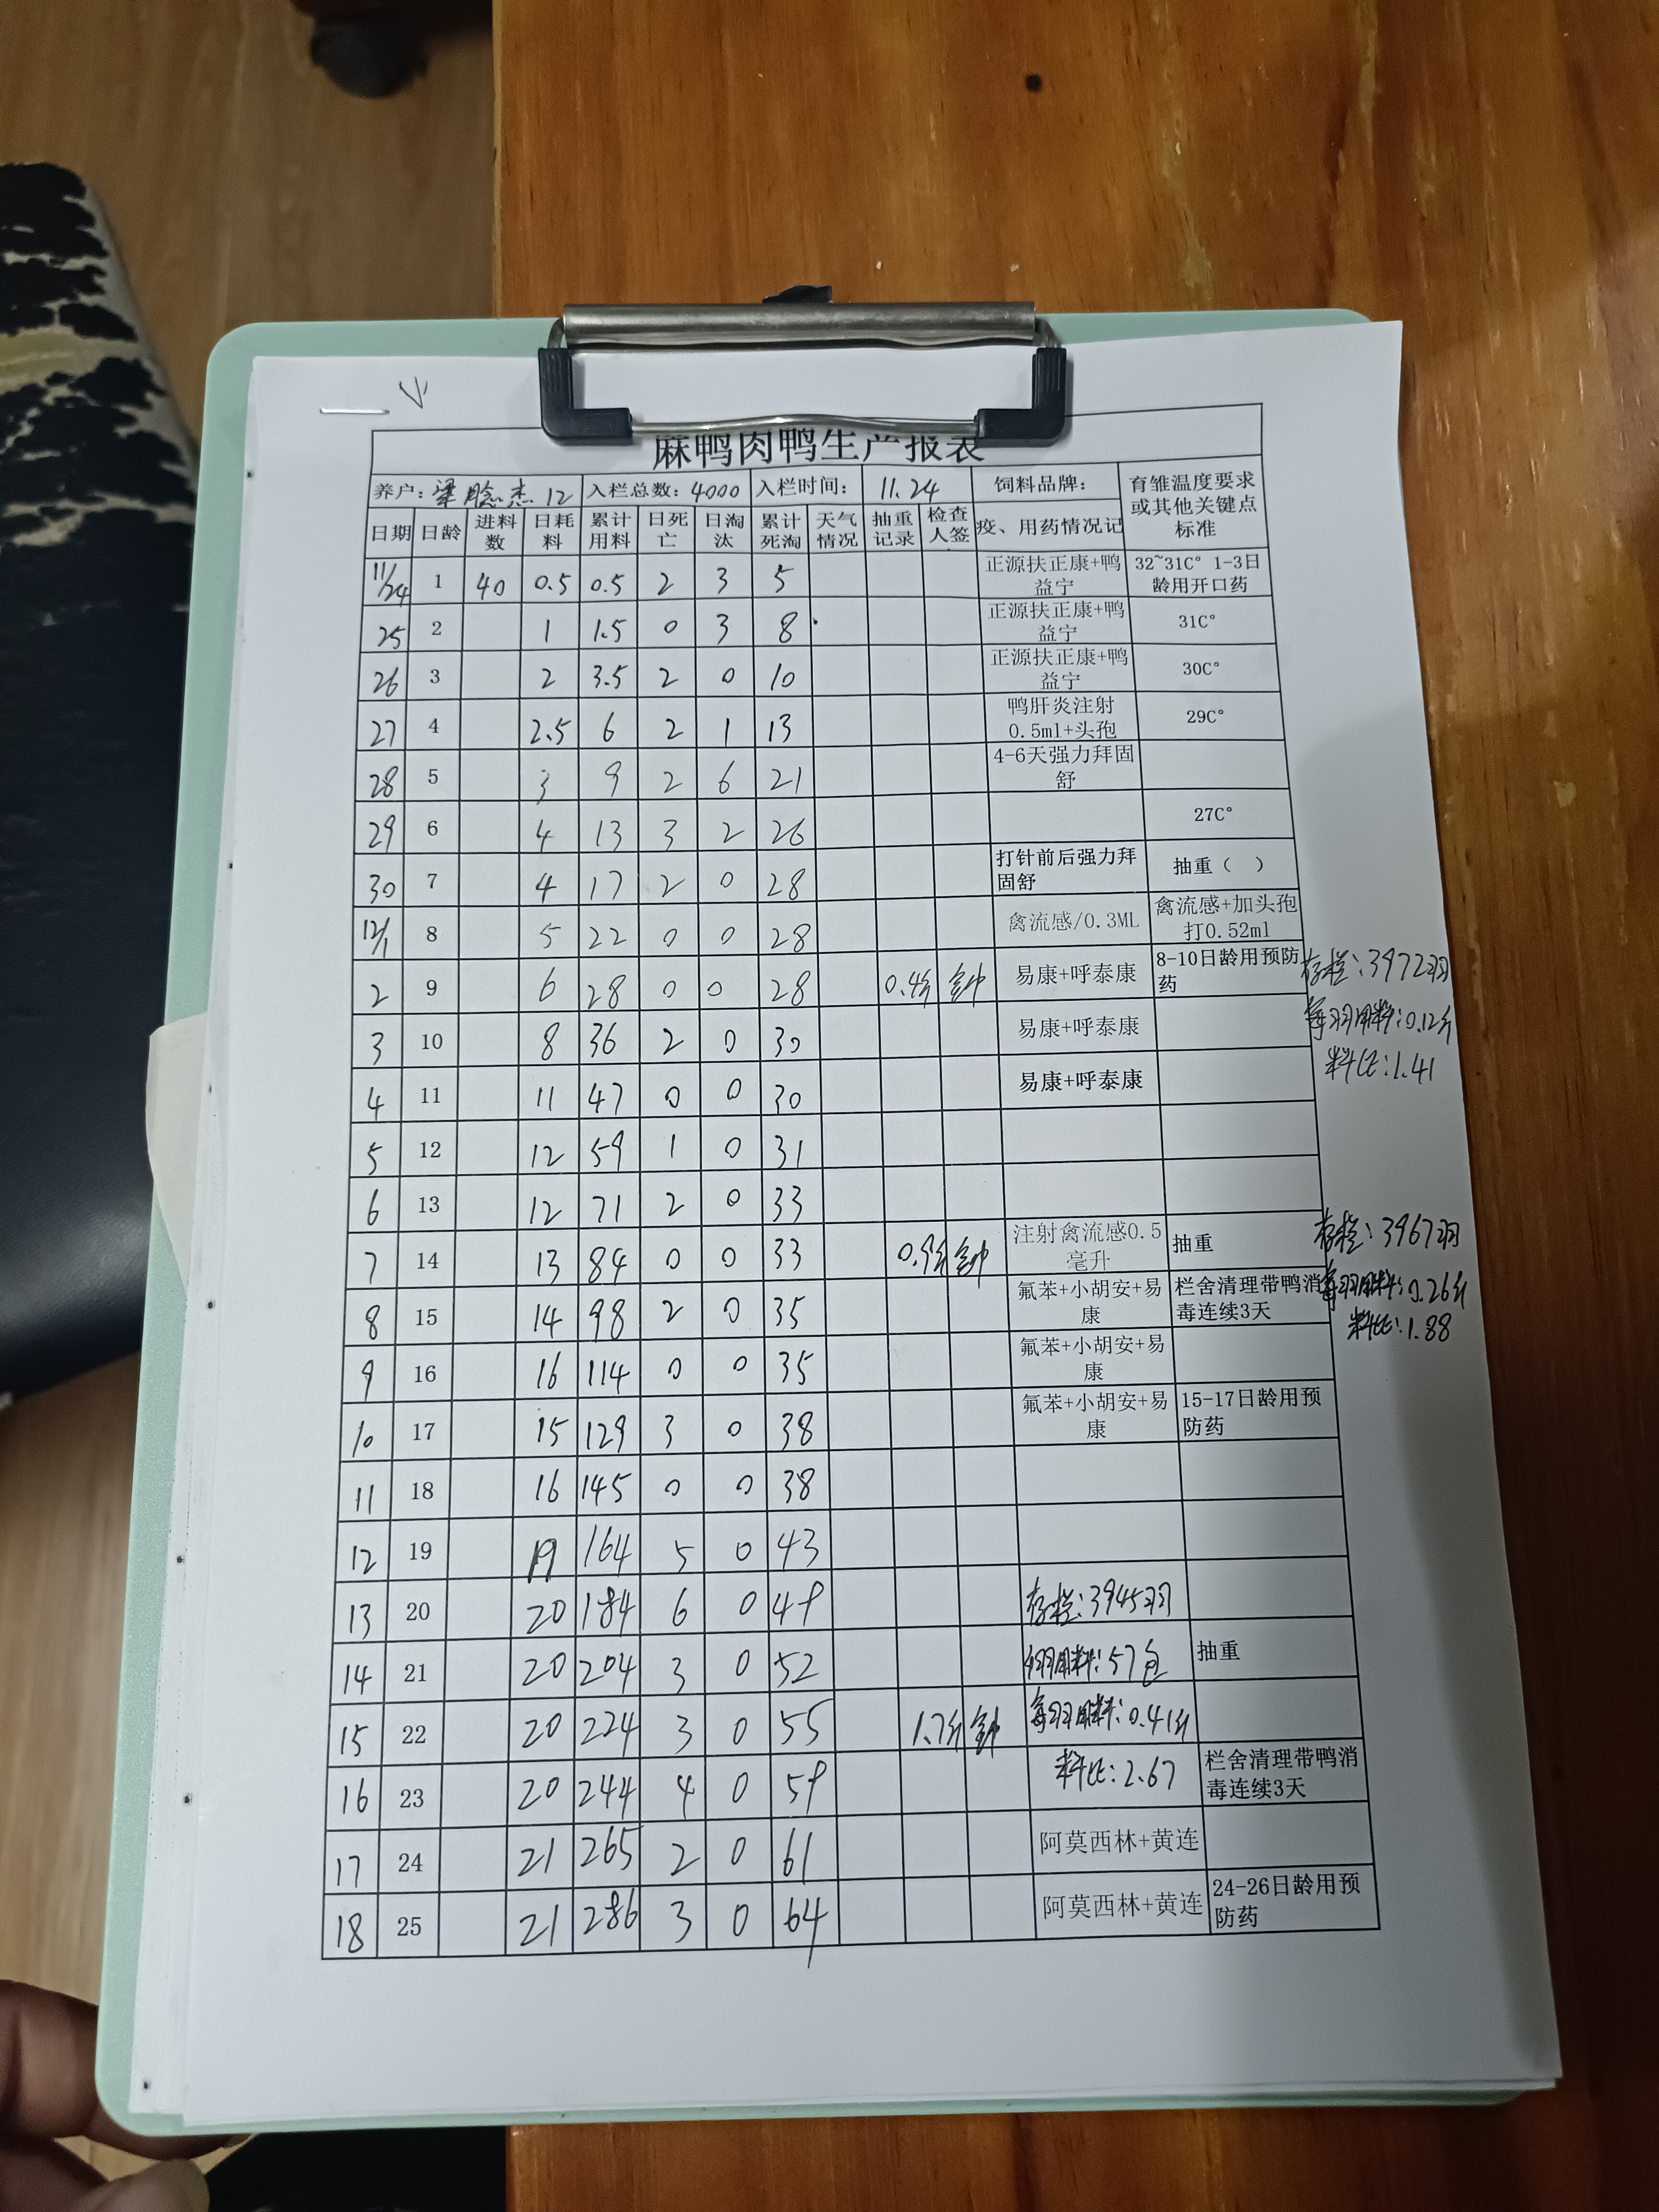 麻鸭肉鸭生产报表
养户: 梁 杰 12 入栏总数: 4000 入栏时间: 11.24 饲料品牌: 育雏温度要求或其他关键点标准
日期 日龄 进料数 日耗料 累计用料 日死亡 日淘汰 累计死淘 天气情况 抽重记录 检查人签 疫、用药情况记
11/24 1 40 0.5 0.5 2 3 5 正源扶正康+鸭益宁 32~31C° 1-3日龄用开口药
25 2 1 1.5 0 3 8 正源扶正康+鸭益宁 31C°
26 3 2 3.5 2 0 10 正源扶正康+鸭益宁 30C°
27 4 2.5 6 2 1 13 鸭肝炎注射0.5ml+头孢 29C°
28 5 3 9 2 6 21 4-6天强力拜固舒
29 6 4 13 3 2 26 27C°
30 7 4 17 2 0 28 打针前后强力拜固舒 抽重（ ）
12/1 8 5 22 0 0 28 禽流感/0.3ML 禽流感+加头孢打0.52ml
2 9 6 28 0 0 28 0.4斤 易康+呼泰康 8-10日龄用预防药 存栏:3972羽
3 10 8 36 2 0 30 易康+呼泰康 每羽用料:0.12斤
4 11 11 47 0 0 30 易康+呼泰康 料比:1.41
5 12 12 59 1 0 31
6 13 12 71 2 0 33
7 14 13 84 0 0 33 0.9斤 注射禽流感0.5毫升 抽重 存栏:3967羽
8 15 14 98 2 0 35 氟苯+小胡安+易康 栏舍清理带鸭消毒连续3天 每羽用料:0.26斤
料比:1.88
9 16 16 114 0 0 35 氟苯+小胡安+易康
10 17 15 129 3 0 38 氟苯+小胡安+易康 15-17日龄用预防药
11 18 16 145 0 0 38
12 19 19 164 5 0 43
13 20 20 184 6 0 49 存栏:3945羽
14 21 20 204 3 0 52 用料:57包 抽重
15 22 20 224 3 0 55 1.7斤 每羽用料:0.41斤
16 23 20 244 4 0 59 料比:2.67 栏舍清理带鸭消毒连续3天
17 24 21 265 2 0 61 阿莫西林+黄连
18 25 21 286 3 0 64 阿莫西林+黄连 24-26日龄用预防药